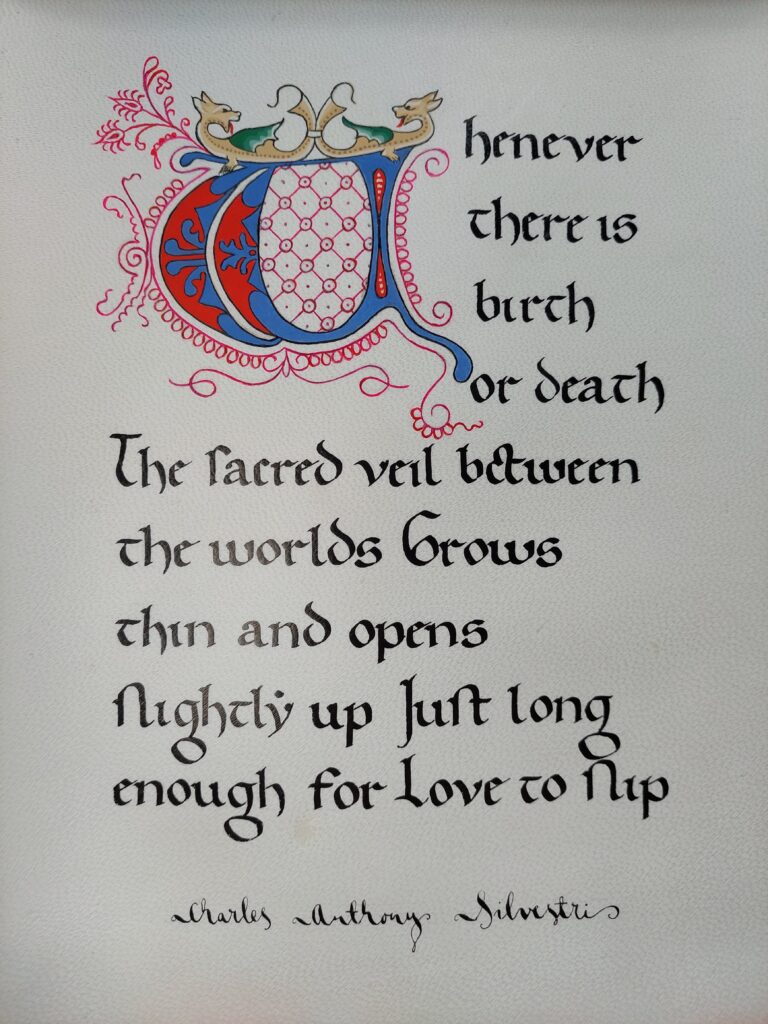 Whenever
there is
birth
or death
The sacred veil between
the worlds Grows
thin and opens
slightly up Just long
enough for Love to slip
Charles Anthony Silvestri